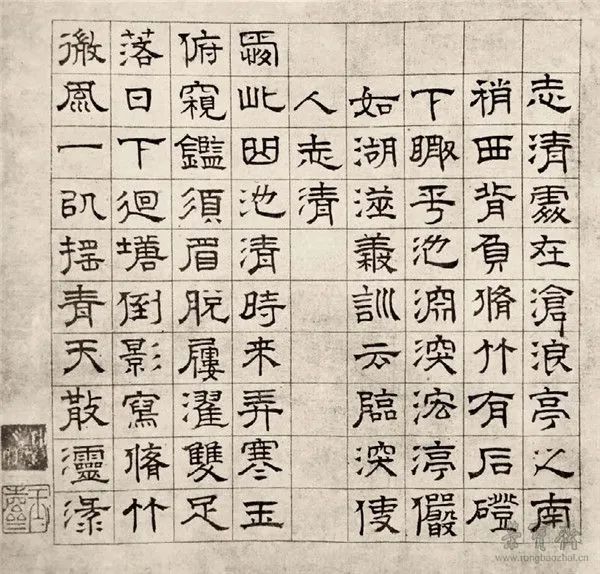 志清處在滄浪亭之南
稍西背負脩竹有石磴
下瞰平池淵深浤渟儼
如湖澨義訓云臨深使
人志清
愛此曲池清時來弄寒玉
俯窺鑑須眉脫屨濯雙足
落日下迴塘倒影寫脩竹
微風一以搖青天散靈淥
榮寶齋
www.rongbaozhai.cn